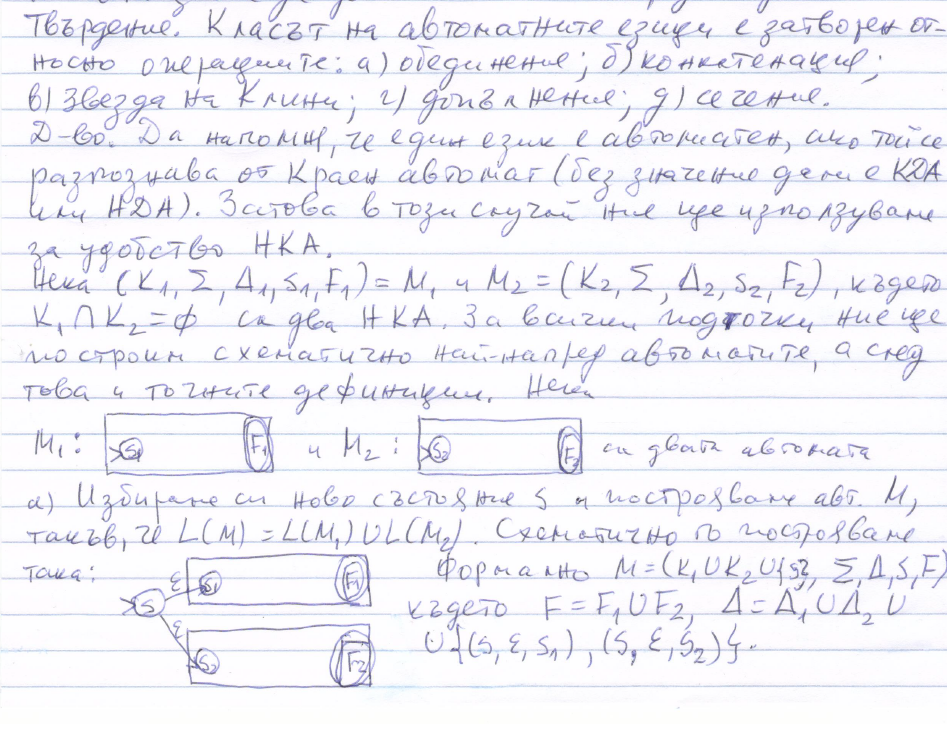 Твърдение. Класът на автоматните езици е затворен от-
носно операциите: а) обединение; б) конкатенация;
в) Звезда на Клини; г) допълнение; д) сечение.
Д-во. Да напомня, че един език е автоматен, ако той се
разпознава от Краен автомат (без значение дали е КДА
или НДА). Затова в този случай ние ще използуваме
за удобство НКА.
Нека (K₁, Σ, Δ₁, s₁, F₁) = M₁ и M₂ = (K₂, Σ, Δ₂, s₂, F₂), където
K₁ ∩ K₂ = ϕ са два НКА. За всички подточки ние ще
построим схематично най-напред автоматите, а след
това и точните дефиниции. Нека
M₁: S₁ F₁ и M₂: S₂ F₂ са двата автомата
а) Избираме си ново състояние s и построяваме авт. M,
такъв, че L(M) = L(M₁) ∪ L(M₂). Схематично го построяваме
така: S ε S₁ F₁ ε S₂ F₂
Формално M = (K₁ ∪ K₂ ∪ {s}, Σ, Δ, s, F)
където F = F₁ ∪ F₂, Δ = Δ₁ ∪ Δ₂ ∪
∪ {(s, ε, s₁), (s, ε, s₂)}.